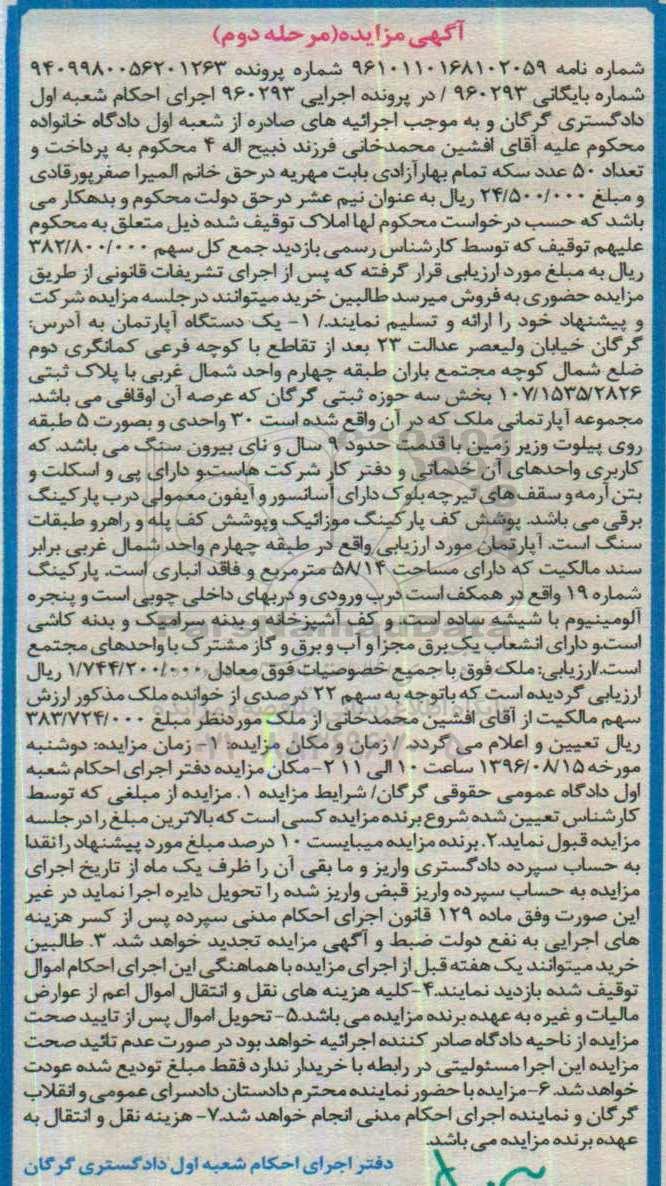 آگهی مزایده(مرحله دوم)
شماره نامه ۹۶۱۰۱۱۰۱۶۸۱۰۲۰۵۹ شماره پرونده ۹۴۰۹۹۸۰۰۵۶۲۰۱۲۶۳
شماره بایگانی ۹۶۰۲۹۳ / در پرونده اجرایی ۹۶۰۲۹۳ اجرای احکام شعبه اول
دادگستری گرگان و به موجب اجرائیه های صادره از شعبه اول دادگاه خانواده
محکوم علیه آقای افشین محمدخانی فرزند ذبیح اله ۴ محکوم به پرداخت و
تعداد ۵۰ عدد سکه تمام بهارآزادی بابت مهریه درحق خانم المیرا صفرپورقادی
و مبلغ ۲۴/۵۰۰/۰۰۰ ریال به عنوان نیم عشر درحق دولت محکوم و بدهکار می
باشد که حسب درخواست محکوم لها املاک توقیف شده ذیل متعلق به محکوم
علیهم توقیف که توسط کارشناس رسمی بازدید جمع کل سهم ۳۸۲/۸۰۰/۰۰۰
ریال به مبلغ مورد ارزیابی قرار گرفته که پس از اجرای تشریفات قانونی از طریق
مزایده حضوری به فروش میرسد طالبین خرید میتوانند درجلسه مزایده شرکت
و پیشنهاد خود را ارائه و تسلیم نمایند./ ۱- یک دستگاه آپارتمان به آدرس:
گرگان خیابان ولیعصر عدالت ۲۳ بعد از تقاطع با کوچه فرعی کمانگری دوم
ضلع شمال کوچه مجتمع باران طبقه چهارم واحد شمال غربی با پلاک ثبتی
۱۰۷/۱۵۳۵/۲۸۲۶ بخش سه حوزه ثبتی گرگان که عرصه آن اوقافی می باشد.
مجموعه آپارتمانی ملک که در آن واقع شده است ۳۰ واحدی و بصورت ۵ طبقه
روی پیلوت وزیر زمین با قدمت حدود ۹ سال و نای بیرون سنگ می باشد. که
کاربری واحدهای آن خدماتی و دفتر کار شرکت هاست.و دارای پی و اسکلت و
بتن آرمه و سقف های تیرچه بلوک دارای آسانسور و آیفون معمولی درب پارکینگ
برقی می باشد. پوشش کف پارکینگ موزائیک وپوشش کف پله و راهرو طبقات
سنگ است. آپارتمان مورد ارزیابی واقع در طبقه چهارم واحد شمال غربی برابر
سند مالکیت که دارای مساحت ۵۸/۱۴ مترمربع و فاقد انباری است. پارکینگ
شماره ۱۹ واقع در همکف است درب ورودی و دربهای داخلی چوبی است و پنجره
آلومینیوم با شیشه ساده است. و کف آشپزخانه و بدنه سرامیک و بدنه کاشی
است.و دارای انشعاب یک برق مجزا و آب و برق و گاز مشترک با واحدهای مجتمع
است./ارزیابی: ملک فوق با جمیع خصوصیات فوق معادل ۱/۷۴۴/۲۰۰/۰۰۰ ریال
ارزیابی گردیده است که باتوجه به سهم ۲۲ درصدی از خوانده ملک مذکور ارزش
سهم مالکیت از آقای افشین محمدخانی از ملک موردنظر مبلغ ۳۸۳/۷۲۴/۰۰۰
ریال تعیین و اعلام می گردد. / زمان و مکان مزایده: ۱- زمان مزایده: دوشنبه
مورخه ۱۳۹۶/۰۸/۱۵ ساعت ۱۰ الی ۱۱ ۲-مکان مزایده دفتر اجرای احکام شعبه
اول دادگاه عمومی حقوقی گرگان/ شرایط مزایده ۱. مزایده از مبلغی که توسط
کارشناس تعیین شده شروع برنده مزایده کسی است که بالاترین مبلغ را درجلسه
مزایده قبول نماید.۲. برنده مزایده میبایست ۱۰ درصد مبلغ مورد پیشنهاد را نقدا
به حساب سپرده دادگستری واریز و ما بقی آن را ظرف یک ماه از تاریخ اجرای
مزایده به حساب سپرده واریز قبض واریز شده را تحویل دایره اجرا نماید در غیر
این صورت وفق ماده ۱۲۹ قانون اجرای احکام مدنی سپرده پس از کسر هزینه
های اجرایی به نفع دولت ضبط و آگهی مزایده تجدید خواهد شد. ۳. طالبین
خرید میتوانند یک هفته قبل از اجرای مزایده با هماهنگی این اجرای احکام اموال
توقیف شده بازدید نمایند.۴-کلیه هزینه های نقل و انتقال اموال اعم از عوارض
مالیات و غیره به عهده برنده مزایده می باشد.۵- تحویل اموال پس از تایید صحت
مزایده از ناحیه دادگاه صادر کننده اجرائیه خواهد بود در صورت عدم تائید صحت
مزایده این اجرا مسئولیتی در رابطه با خریدار ندارد فقط مبلغ تودیع شده عودت
خواهد شد. ۶-مزایده با حضور نماینده محترم دادستان دادسرای عمومی و انقلاب
گرگان و نماینده اجرای احکام مدنی انجام خواهد شد.۷- هزینه نقل و انتقال به
عهده برنده مزایده می باشد.
دفتر اجرای احکام شعبه اول دادگستری گرگان